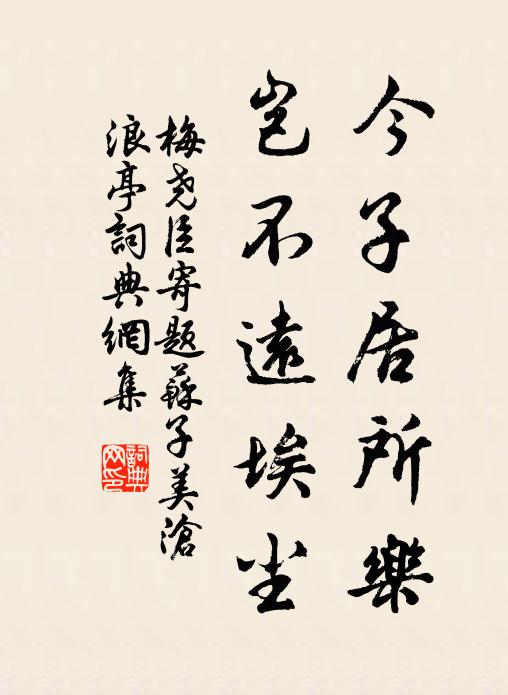 今子居所樂
豈不遠埃尘
梅尧臣寄题蘇子美滄
浪亭詞典網集
詞典
网印